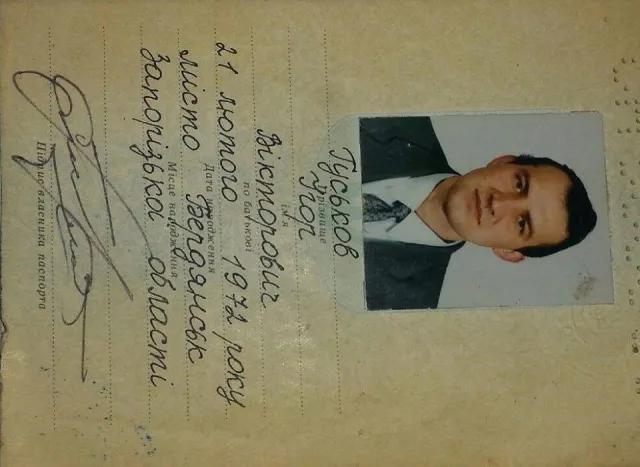 Гуськов
прізвище
Ігор
ім'я
Вікторович
по батькові
21 лютого 1972 року
Дата народження
місто Бердянськ
Місце народження
Запорізької області
Підпис власника паспорта